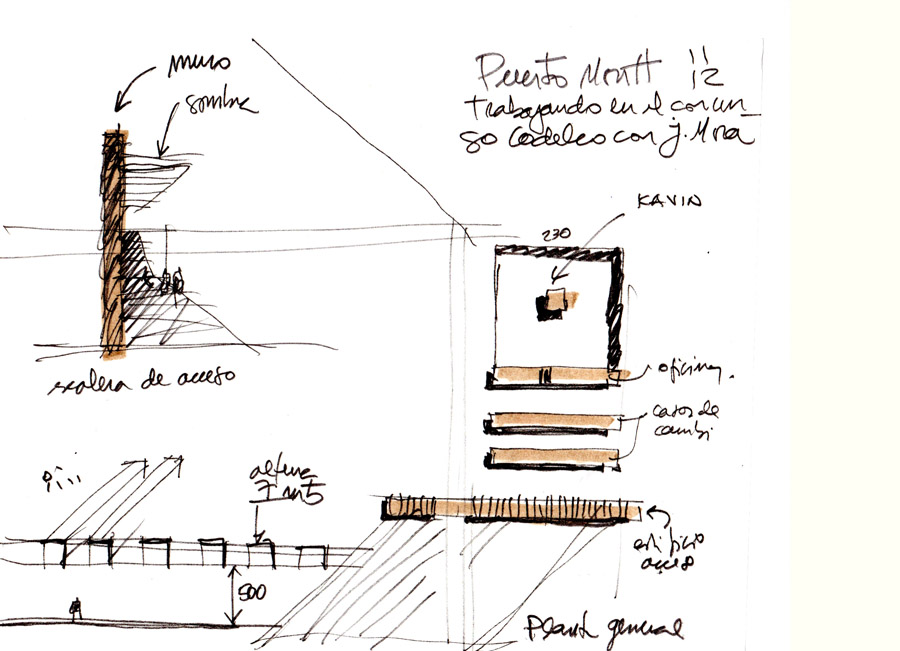 muro
sombra
Puerto Montt 11
12
trabajando en el concur_
so Codelco con J. Mora
KAVIN
230
escalera de acceso
oficinas.
casas de
cambi
altura
7 mt5
500
edificio
acceso
Planta general